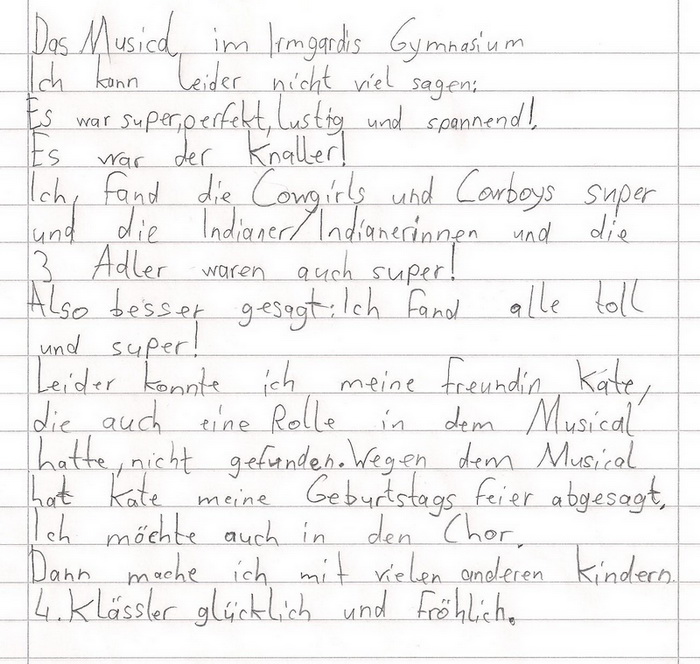 Das Musical im Irmgardis Gymnasium
Ich kann leider nicht viel sagen:
Es war super, perfekt, lustig und spannend!
Es war der Knaller!
Ich, fand die Cowgirls und Cowboys super
und die Indianer/Indianerinnen und die
3 Adler waren auch super!
Also besser gesagt: Ich fand alle toll
und super!
Leider konnte ich meine freundin Kate,
die auch eine Rolle in dem Musical
hatte, nicht gefunden. Wegen dem Musical
hat Kate meine Geburtstags feier abgesagt.
Ich möchte auch in den Chor.
Dann mache ich mit vielen anderen kindern
4. Klässler glücklich und fröhlich.